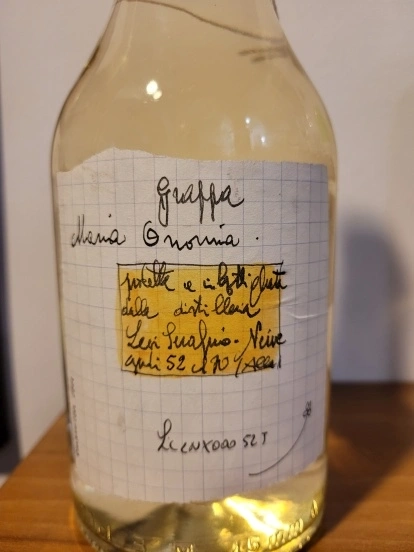 Grappa
Maria Onorina.
prodotta e imbottigliata
dalla distilleria
Levi Serafino. Neive
gradi 52 cl 70